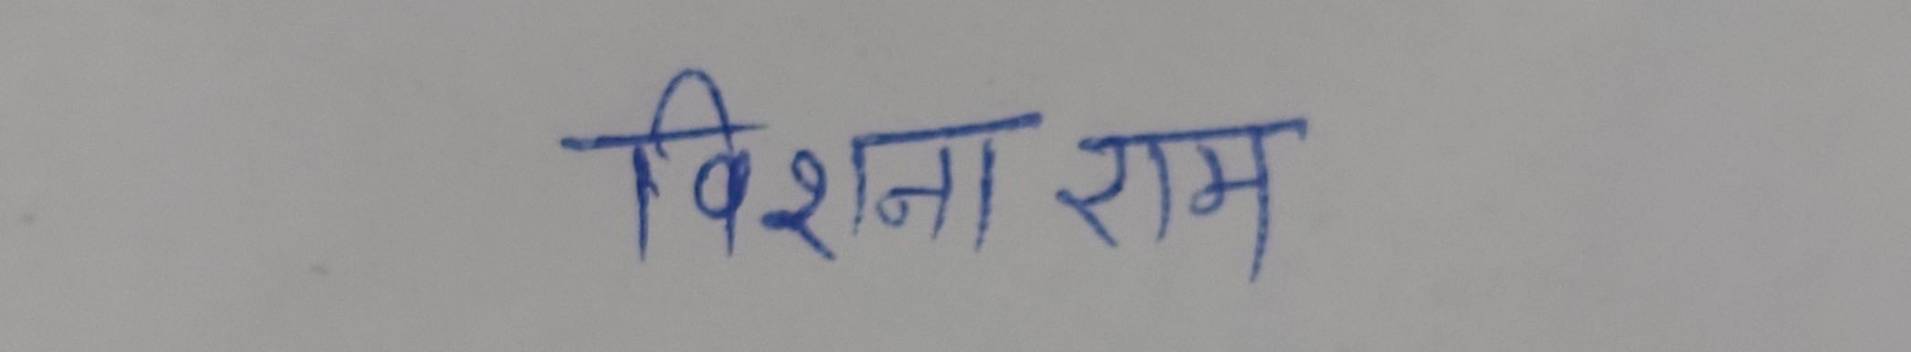 विशना राम